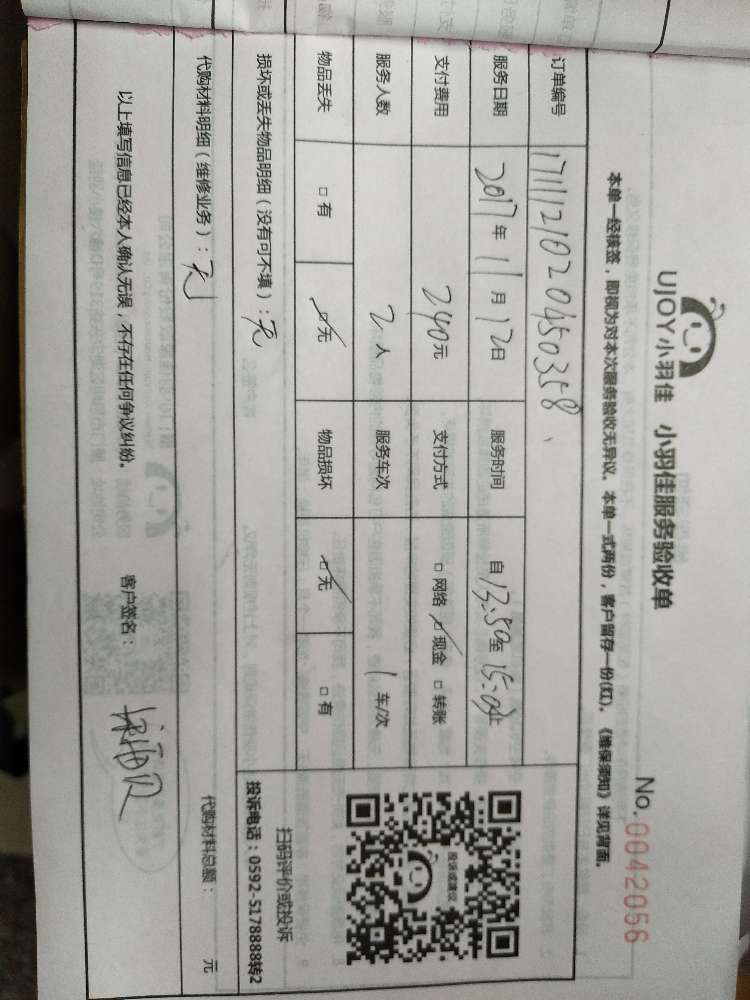 UJOY小羽佳 小羽佳服务验收单
No.0042056
本单一经核签，即视为对本次服务验收无异议。本单一式两份，客户留存一份(红)。《维保须知》详见背面。
订单编号 1711121020450358
服务日期 2017年11月12日 服务时间 自13:50至15:0 止
支付费用 240元 支付方式 □网络 ☑现金 □转账
服务人数 2人 服务车次 1车/次
物品丢失 □有 ☑无 物品损坏 ☑无 □有
投诉或建议
扫码评价或投诉
投诉电话：0592-5178888转2
损坏或丢失物品明细（没有可不填）：无
代购材料明细（维修业务）：无 代购材料总额： 元
以上填写信息已经本人确认无误，不存在任何争议纠纷。 客户签名：